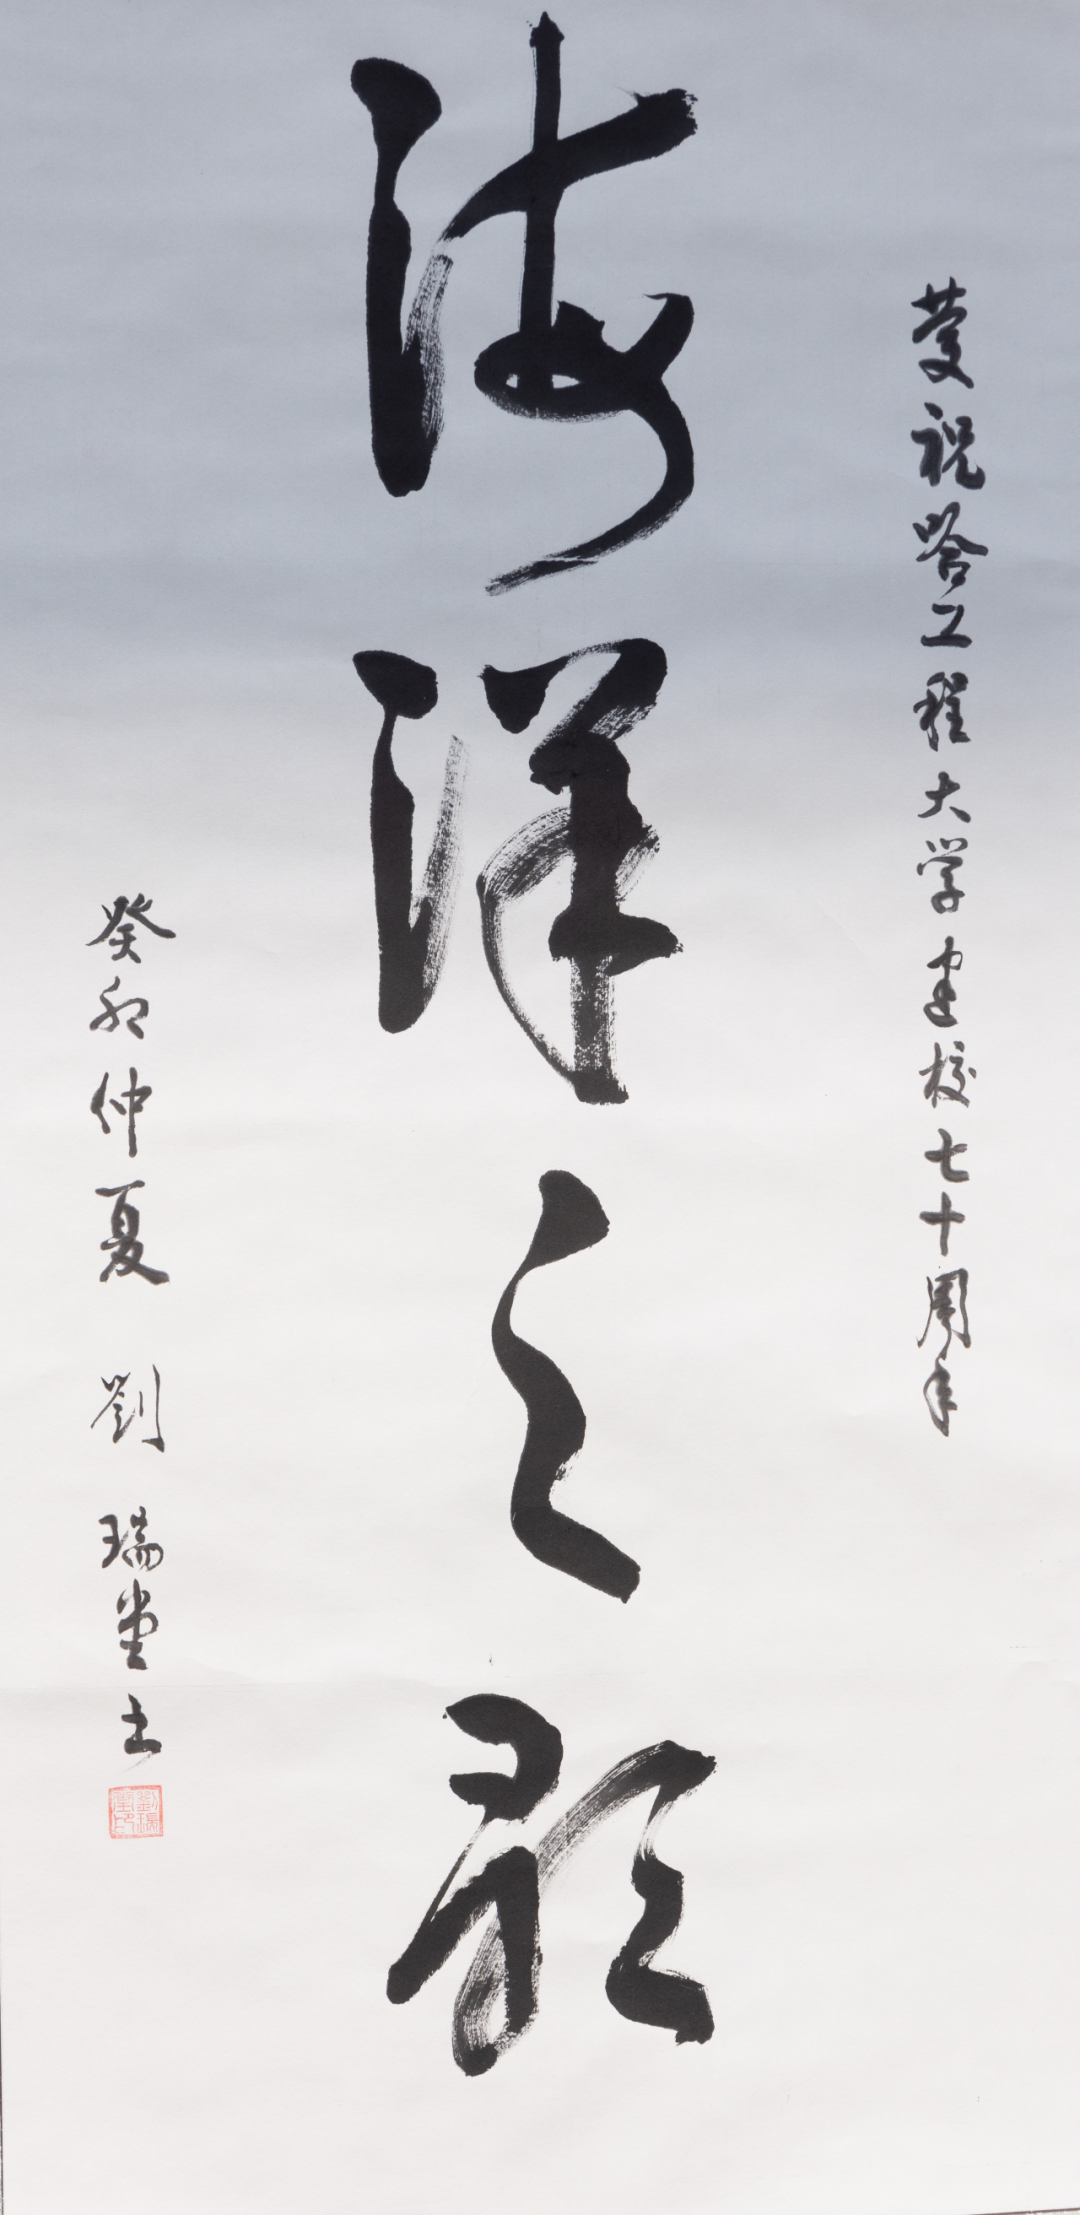 慶祝哈工程大学建校七十周年
海洋之歌
癸卯仲夏 劉瑞堂
劉瑞堂印